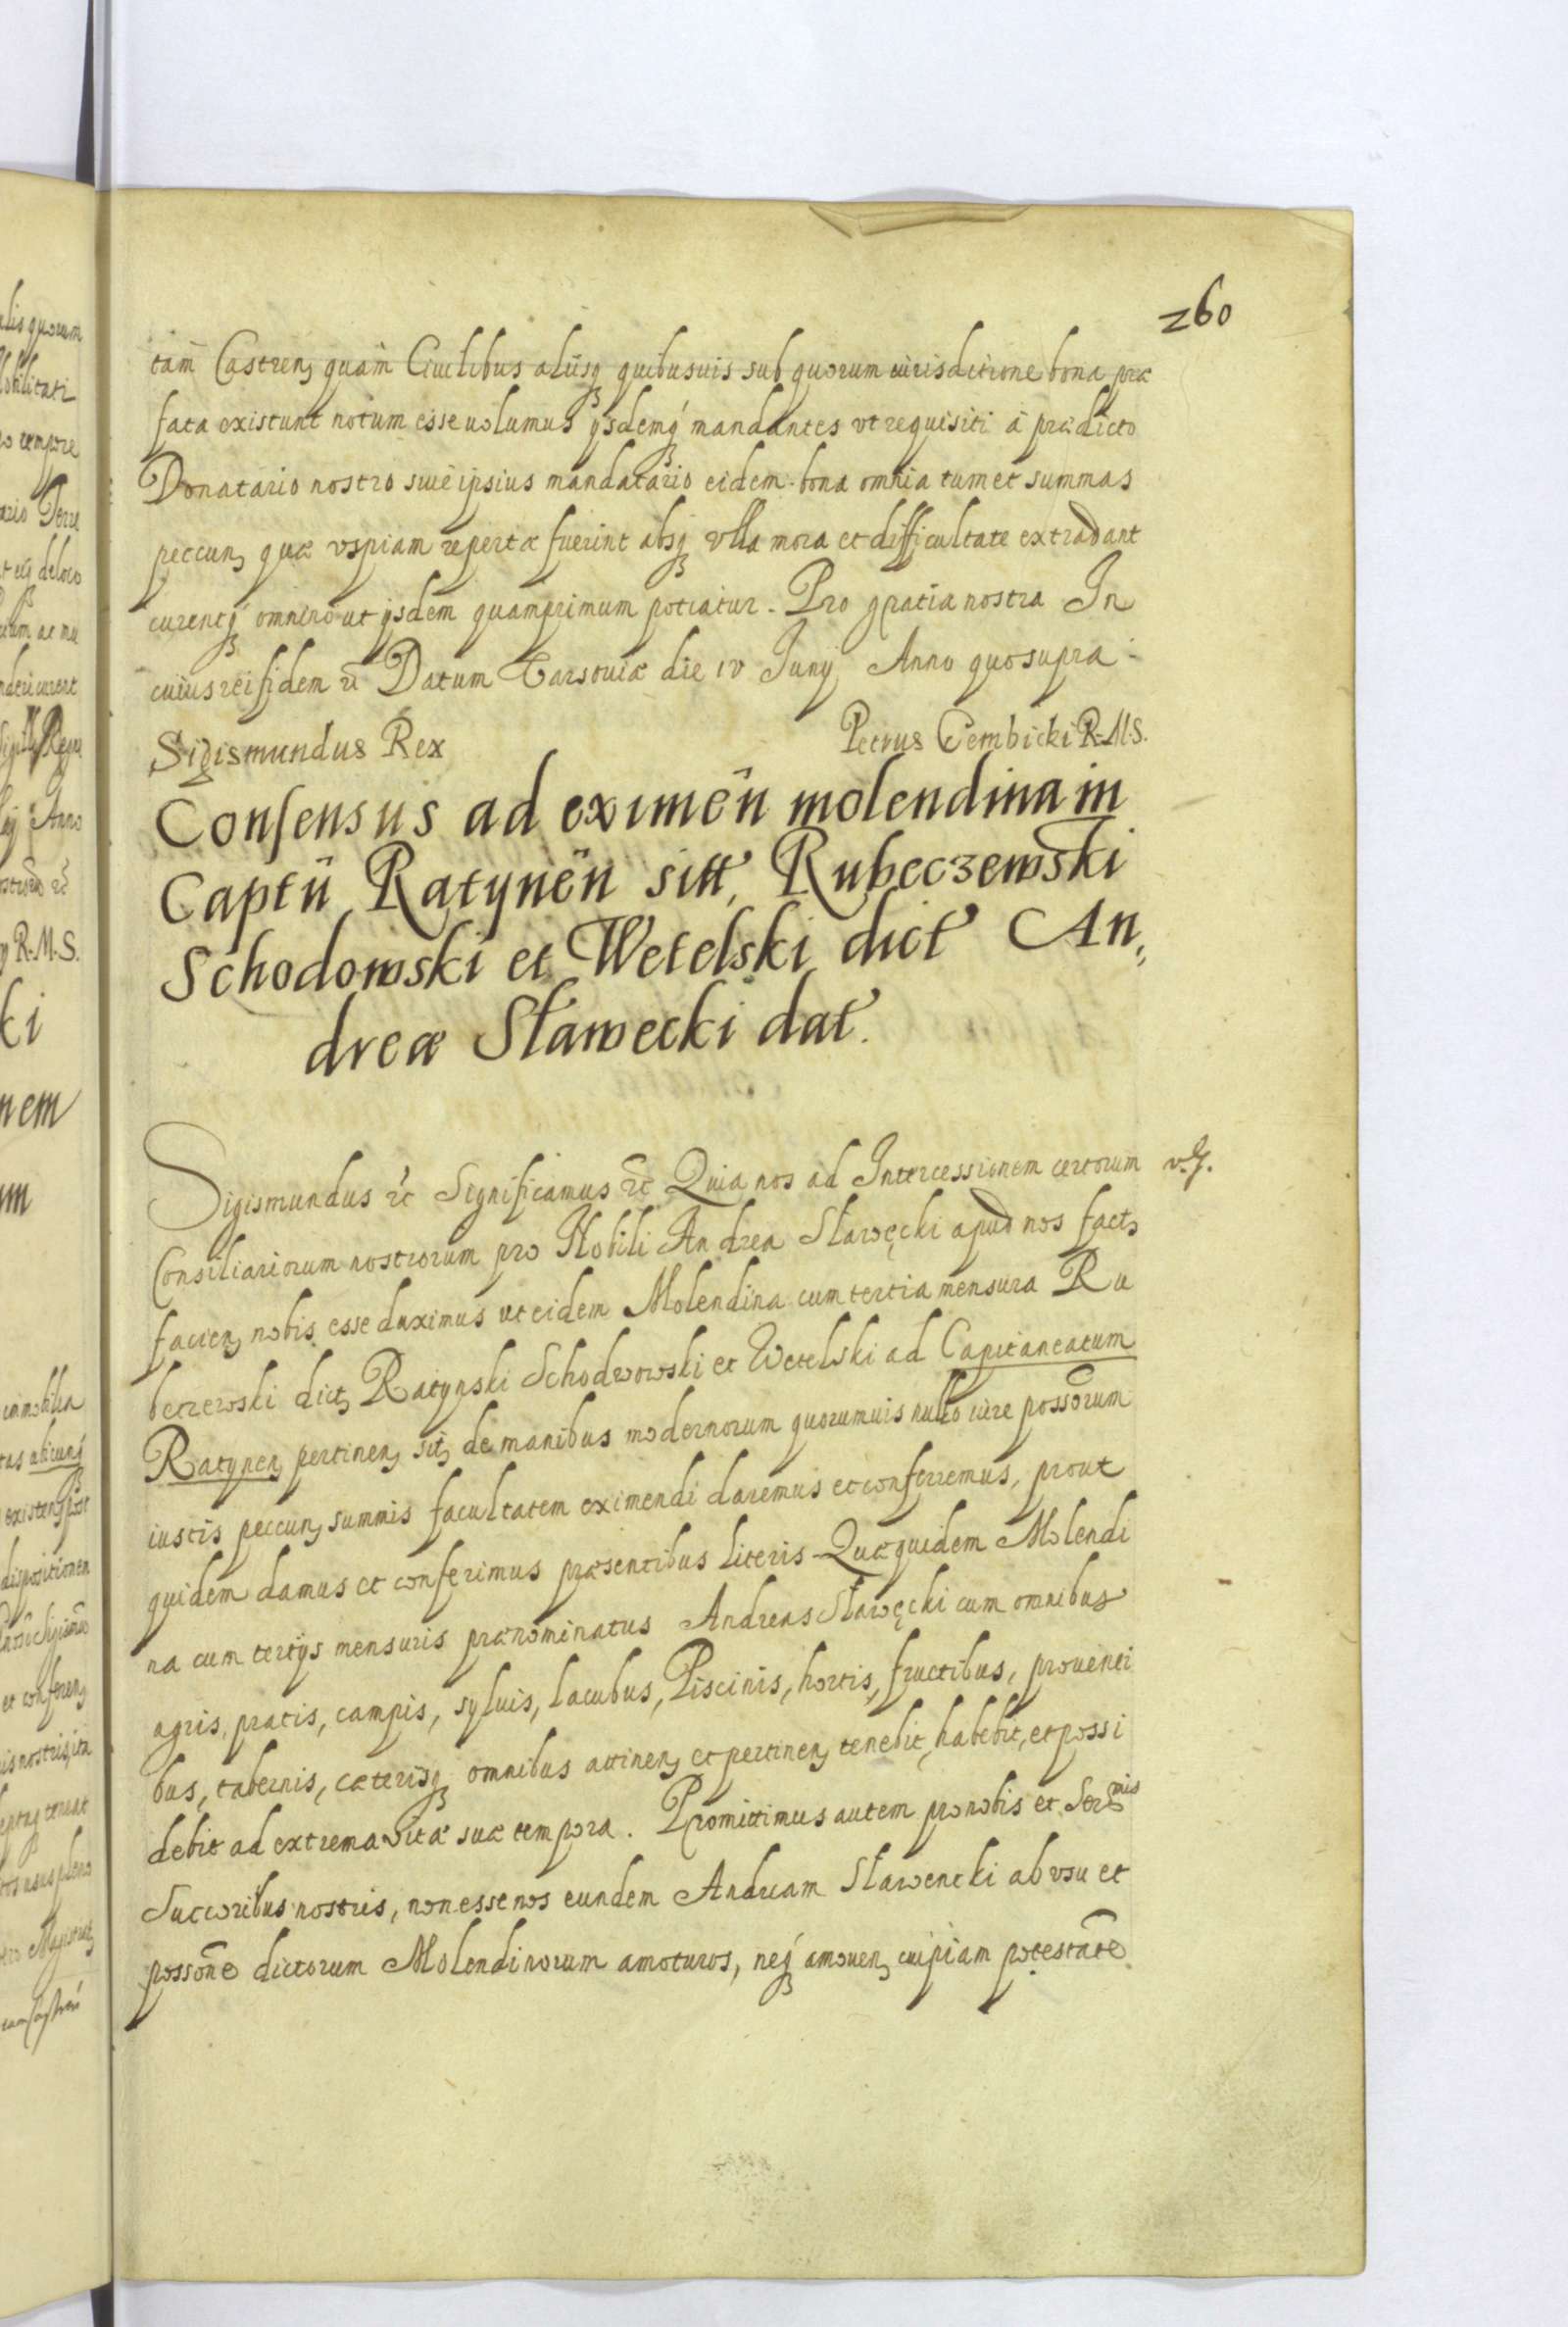 260
tam Castren, quam Ciuilibus alÿsq quibusuis sub quorum iurisditione bona præ
fata existunt notum esse uolumus ÿsdemq mandantes vt requisiti à prædicto
Donatario nostro siue ipsius mandatario eidem bona omnia tum et summas
peccun, quæ vspiam repertæ fuerint absq vlla mora et difficultate extradant
curentq omnino ut ÿsdem quamprimum potiatur. Pro gratia nostra In
cuius rei fidem rc Datum die IV Iunÿ Anno quo supra.
Sigismundus Rex Petrus R.M.S.
Consensus ad eximen molendina in
Captu Ratynen sitt, Rubeczewski
Schodowski et Wetelski dict An,
dreæ Sławecki dat.
Sigismundus rc Significamus rc Quia nos ad Intercessionem certorum v.g.
Consiliariorum nostrorum pro Nobili Andrea Sławęcki apud nos fact,
facien, nobis esse duximus ut eidem Molendina cum tertia mensura Ru
beczewski dict, Ratynski Schodwowski et Wetelski ad Capitaneatum
Ratynen, pertinen, sit, de manibus modernorum quorumuis nullo iure possorum
iustis peccun, summis facultatem eximendi daremus et conferremus, prout
quidem damus et conferimus præsentibus literis. Quæquidem Molendi
na cum tertÿs mensuris prænominatus Andreas Sławęcki cum omnibus
agris, pratis, campis, syluis, lacubus, Piscinis, hortis, fructibus, prouenti
bus, tabernis, cæterisq omnibus attinen, et pertinen, tenebit, habebit, et possi
debit ad extrema vitæ suæ tempora. Promittimus autem pro nobis et Sermis
Succoribus nostris, non esse nos eundem Andream Sławencki ab vsu et
possone dictorum Molendinorum amoturos, neq amouen, cuipiam potestate